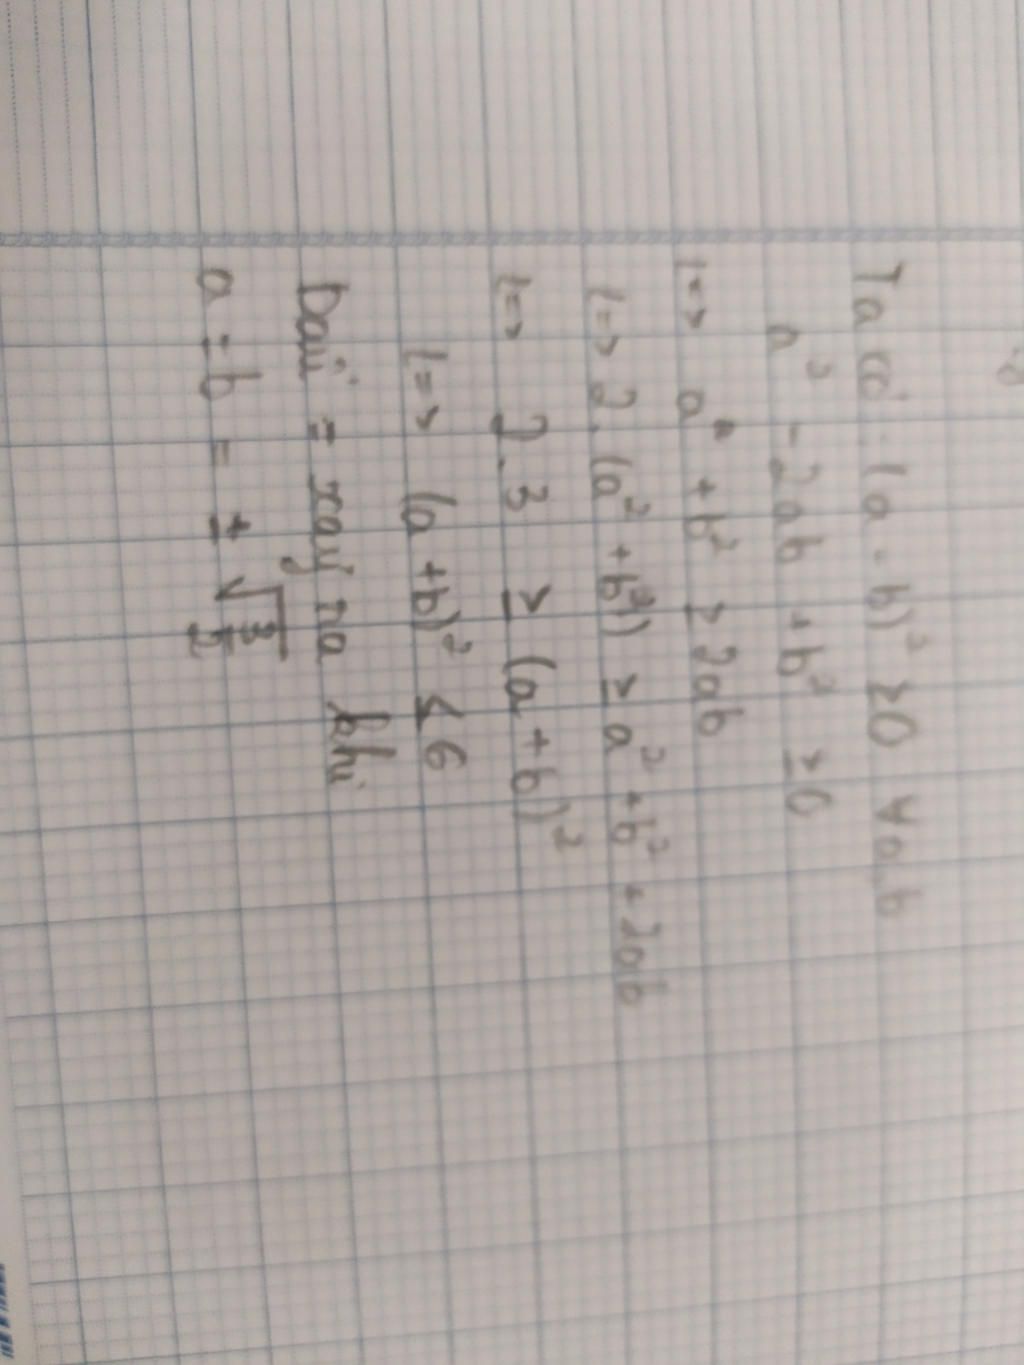 Ta có: (a - b)² ≥ 0 ∀ a,b
a² - 2ab + b² ≥ 0
<=> a² + b² ≥ 2ab
<=> 2.(a² + b²) ≥ a² + b² + 2ab
<=> 2.3 ≥ (a + b)²
<=> (a + b)² ≤ 6
Dấu = xảy ra khi
a = b = ± √(3/2)